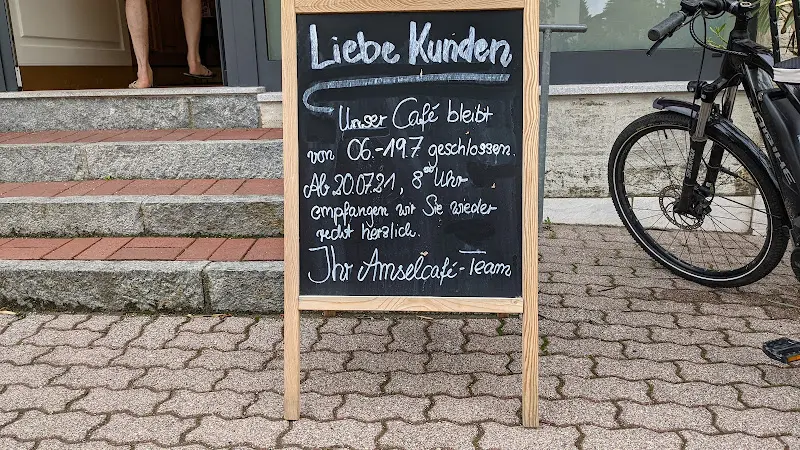 Liebe Kunden
Unser Café bleibt
von 06.-19.7 geschlossen.
Ab 20.07.21, 8⁰⁰ Uhr
empfangen wir Sie wieder
recht herzlich.
Ihr Amselcafé-Team